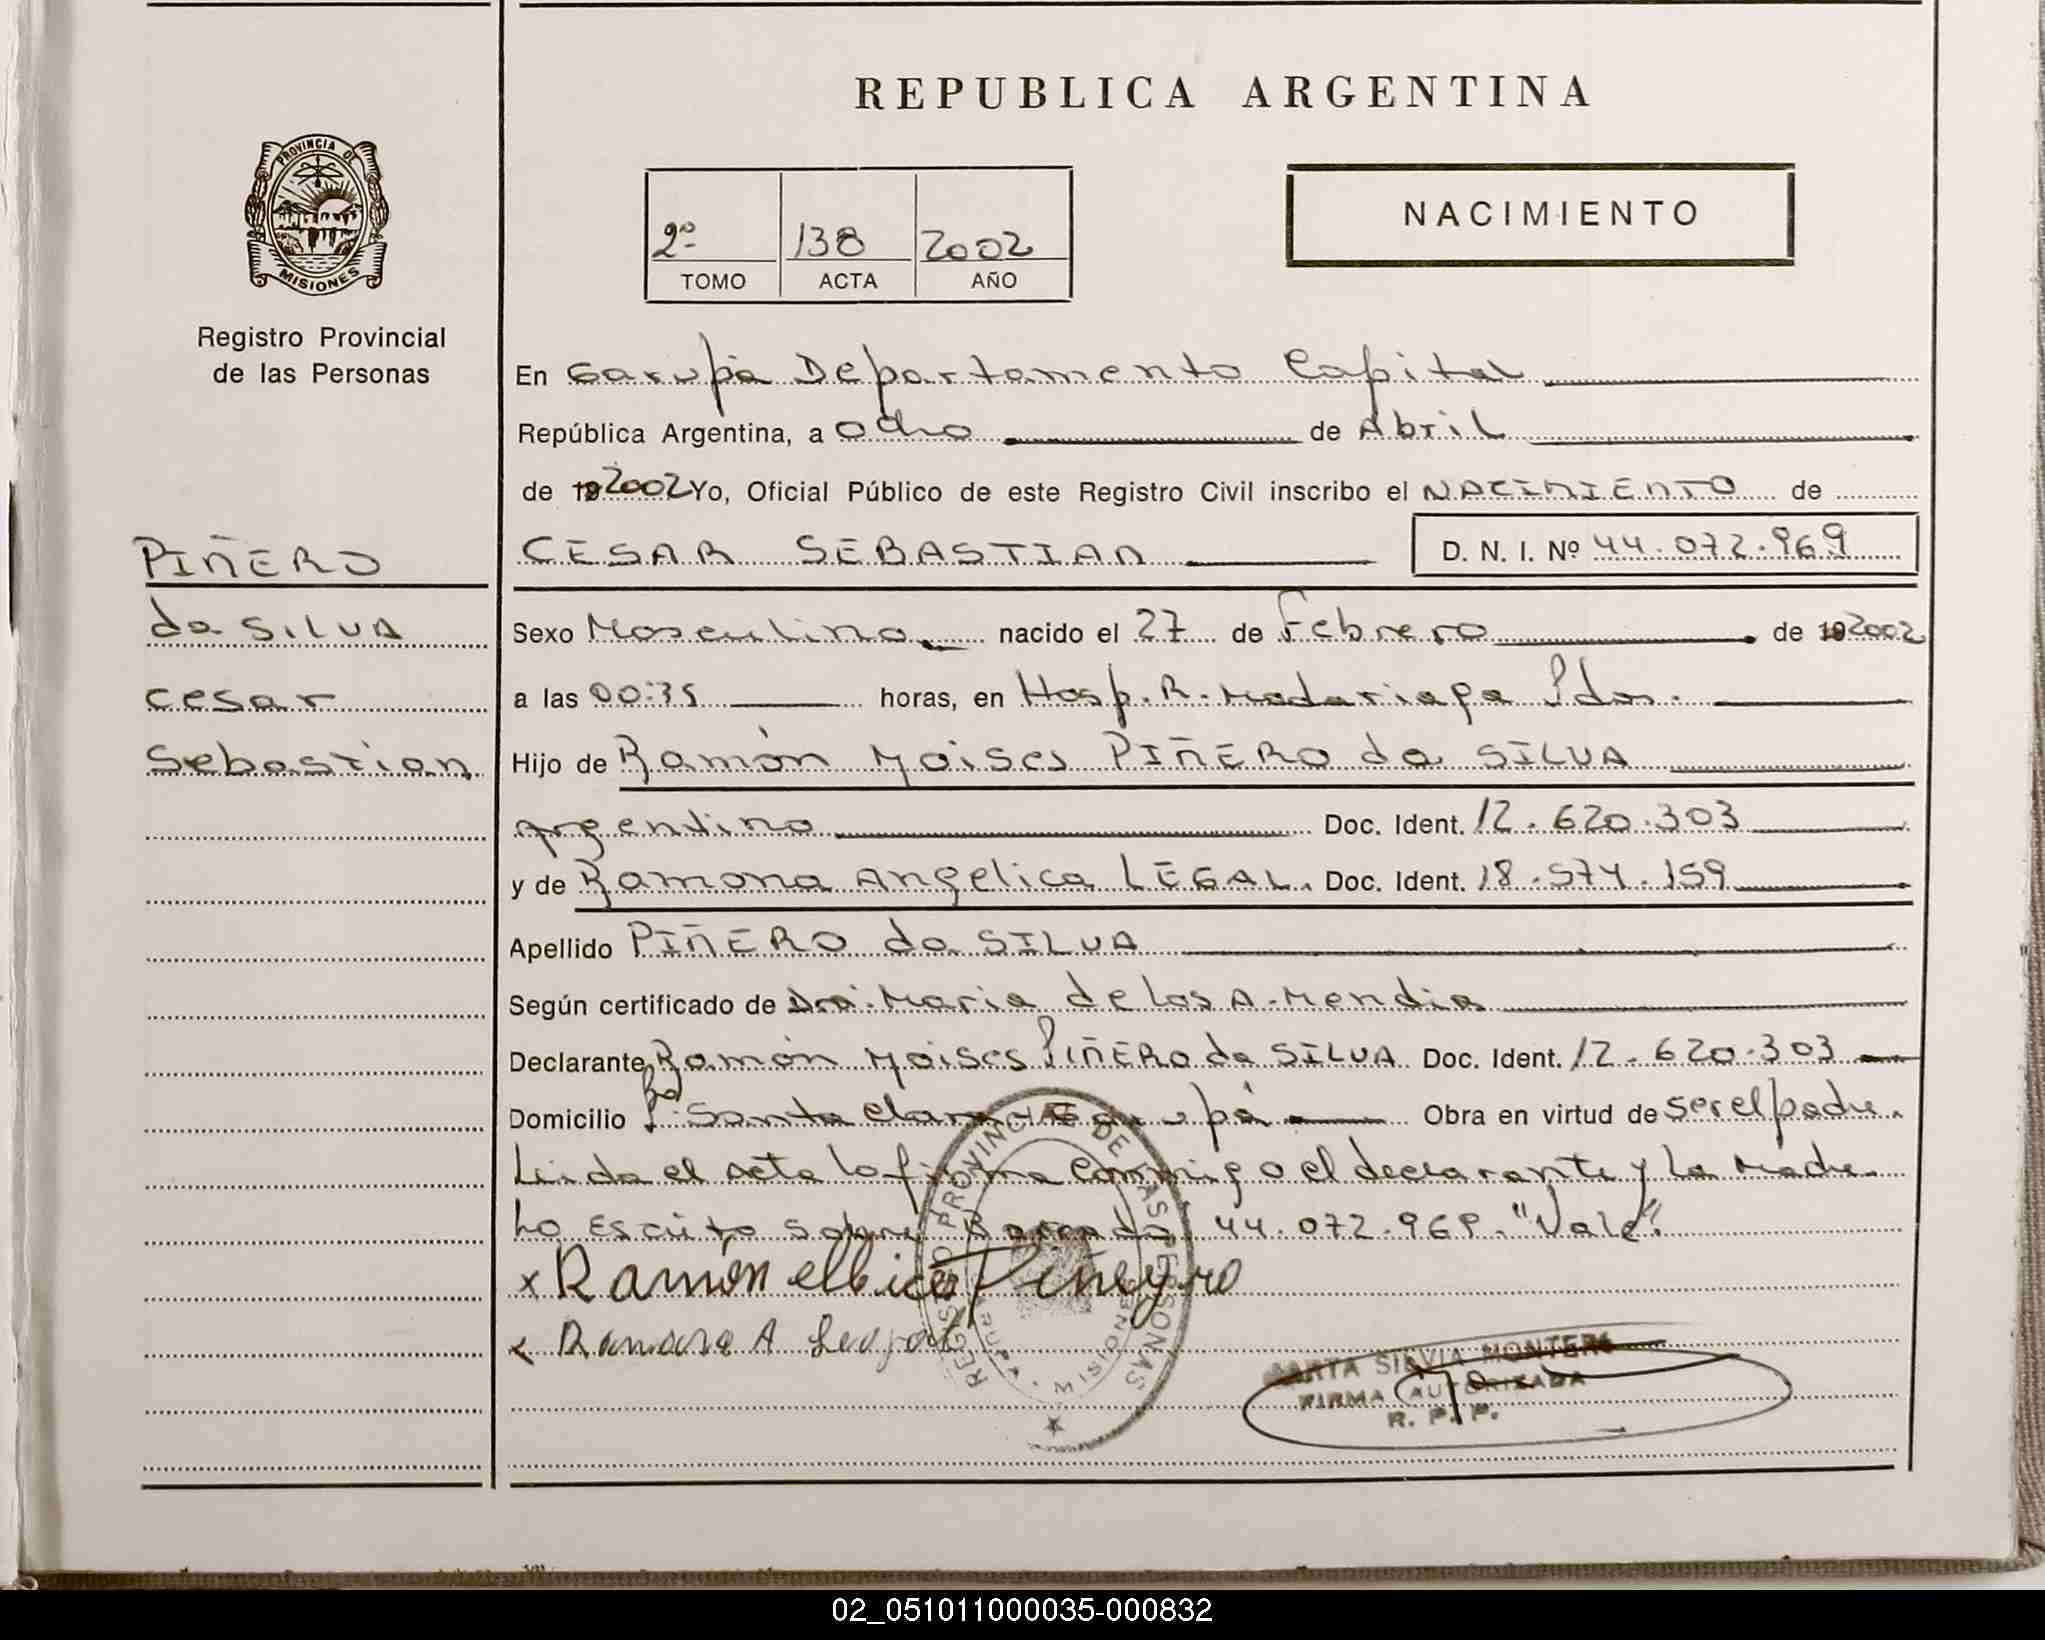 REPUBLICA ARGENTINA
PROVINCIA DE
MISIONES
Registro Provincial
de las Personas
2º 138 2002
TOMO ACTA AÑO
NACIMIENTO
En Garupá Departamento Capital
República Argentina, a ocho de Abril
de 19 2002 Yo, Oficial Público de este Registro Civil inscribo el NACIMIENTO de
CESAR SEBASTIAN D. N. I. Nº 44.072.969
PIÑERO
da SILVA
cesar
Sebastian
Sexo Masculino nacido el 27 de Febrero de 19 2002
a las 00:35 horas, en Hosp. R. Madariaga Pdas.
Hijo de Ramón Moises PIÑERO da SILVA
argentino Doc. Ident. 12.620.303
y de Ramona Angelica LEGAL. Doc. Ident. 18.574.159
Apellido PIÑERO da SILVA
Según certificado de Dra. Maria de los A. Mendia
Declarante Ramón Moises PIÑERO da SILVA Doc. Ident. 12.620.303
Domicilio Santa Clara Garupá Obra en virtud de ser el padre.
Leida el acta la firma conmigo el declarante y la Madre.
Lo Escrito sobre Borrado 44.072.969. "Vale".
x Ramón Piñeyro
x Ramona A
REGISTRO PROVINCIAL DE LAS PERSONAS
MISIONES
MARTA SILVIA MONTERO
FIRMA AUTORIZADA
R. P. P.
02_051011000035-000832